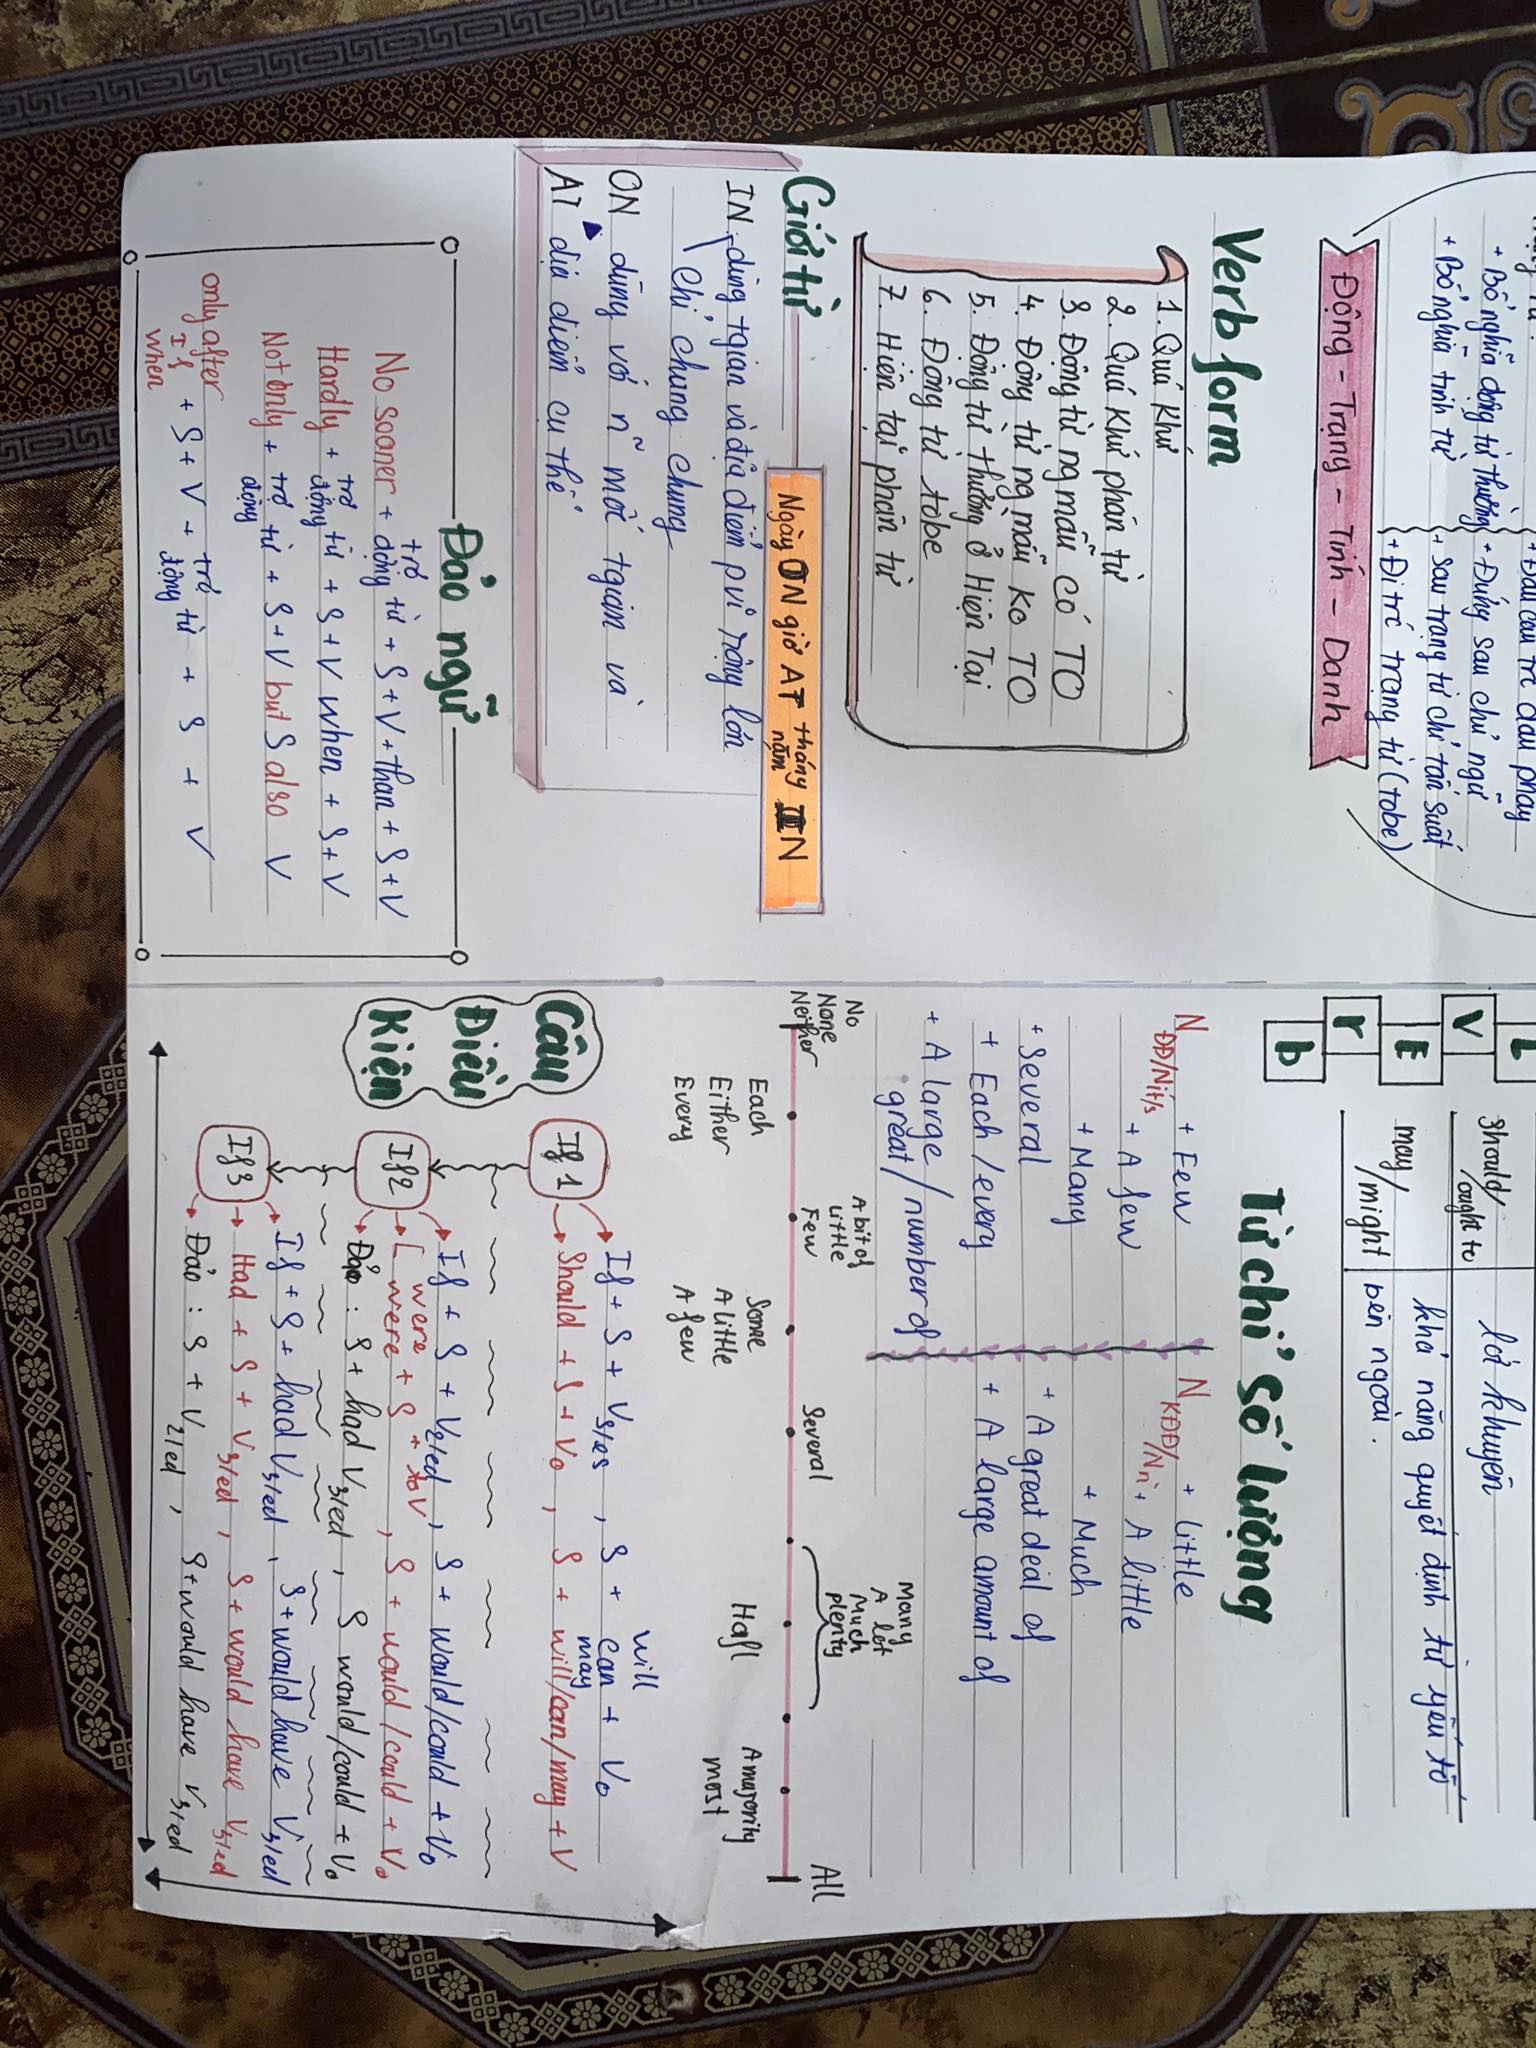 + Bổ nghĩa động từ thường
+ Bổ nghĩa tính từ
+ Đầu câu trc dấu phẩy
+ Đứng sau chủ ngữ
+ Sau trạng từ chỉ tần suất
+ Đi trc trạng từ (tobe)
Động - Trạng - Tính - Danh
Verb form
1. Quá khứ
2. Quá khứ phân từ
3. Động từ ng mẫu có TO
4. Động từ ng mẫu ko TO
5. Động từ thường ở Hiện Tại
6. Động từ tobe
7. Hiện tại phân từ
Giới từ
Ngày ON giờ AT tháng năm IN
IN dùng tgian và địa điểm pvi rộng lớn
Chỉ chung chung
ON dùng với n~ mốc tgian và
AT địa điểm cụ thể
Đảo ngữ
No sooner + trợ động từ + S + V + than + S + V
Hardly + trợ động từ + S + V when + S + V
Not only + trợ động từ + S + V but S also V
only after
If
when
+ S + V + trợ động từ + S + V
L
V
E
r
b
should/ought to
lời khuyên
may/might
khả năng quyết định từ yếu tố
bên ngoài.
Từ chỉ số lượng
N ĐĐ/Nit/s
+ Few
+ A few
+ Many
+ Several
+ Each/every
+ A large/number of
great/
N KĐĐ/Nn
+ little
+ A little
+ Much
+ A great deal of
+ A large amount of
No
None
Neither
Each
Either
Every
A bit of
Little
Few
Some
A little
A few
Several
Many
A lot
Much
plenty
Half
A majority
most
All
Câu
Điều
Kiện
If 1
If + S + Vs/es, S + will can may + Vo
Should + S + Vo, S + will/can/may + V
If 2
If + S + V2/ed, S + would/could + Vo
were
were + S + to V, S + would/could + Vo
Đảo: S + had V3/ed, S would/could + Vo
If 3
If + S + had V3/ed, S + would have V3/ed
Had + S + V3/ed, S + would have V3/ed
Đảo: S + V2/ed, S + would have V3/ed